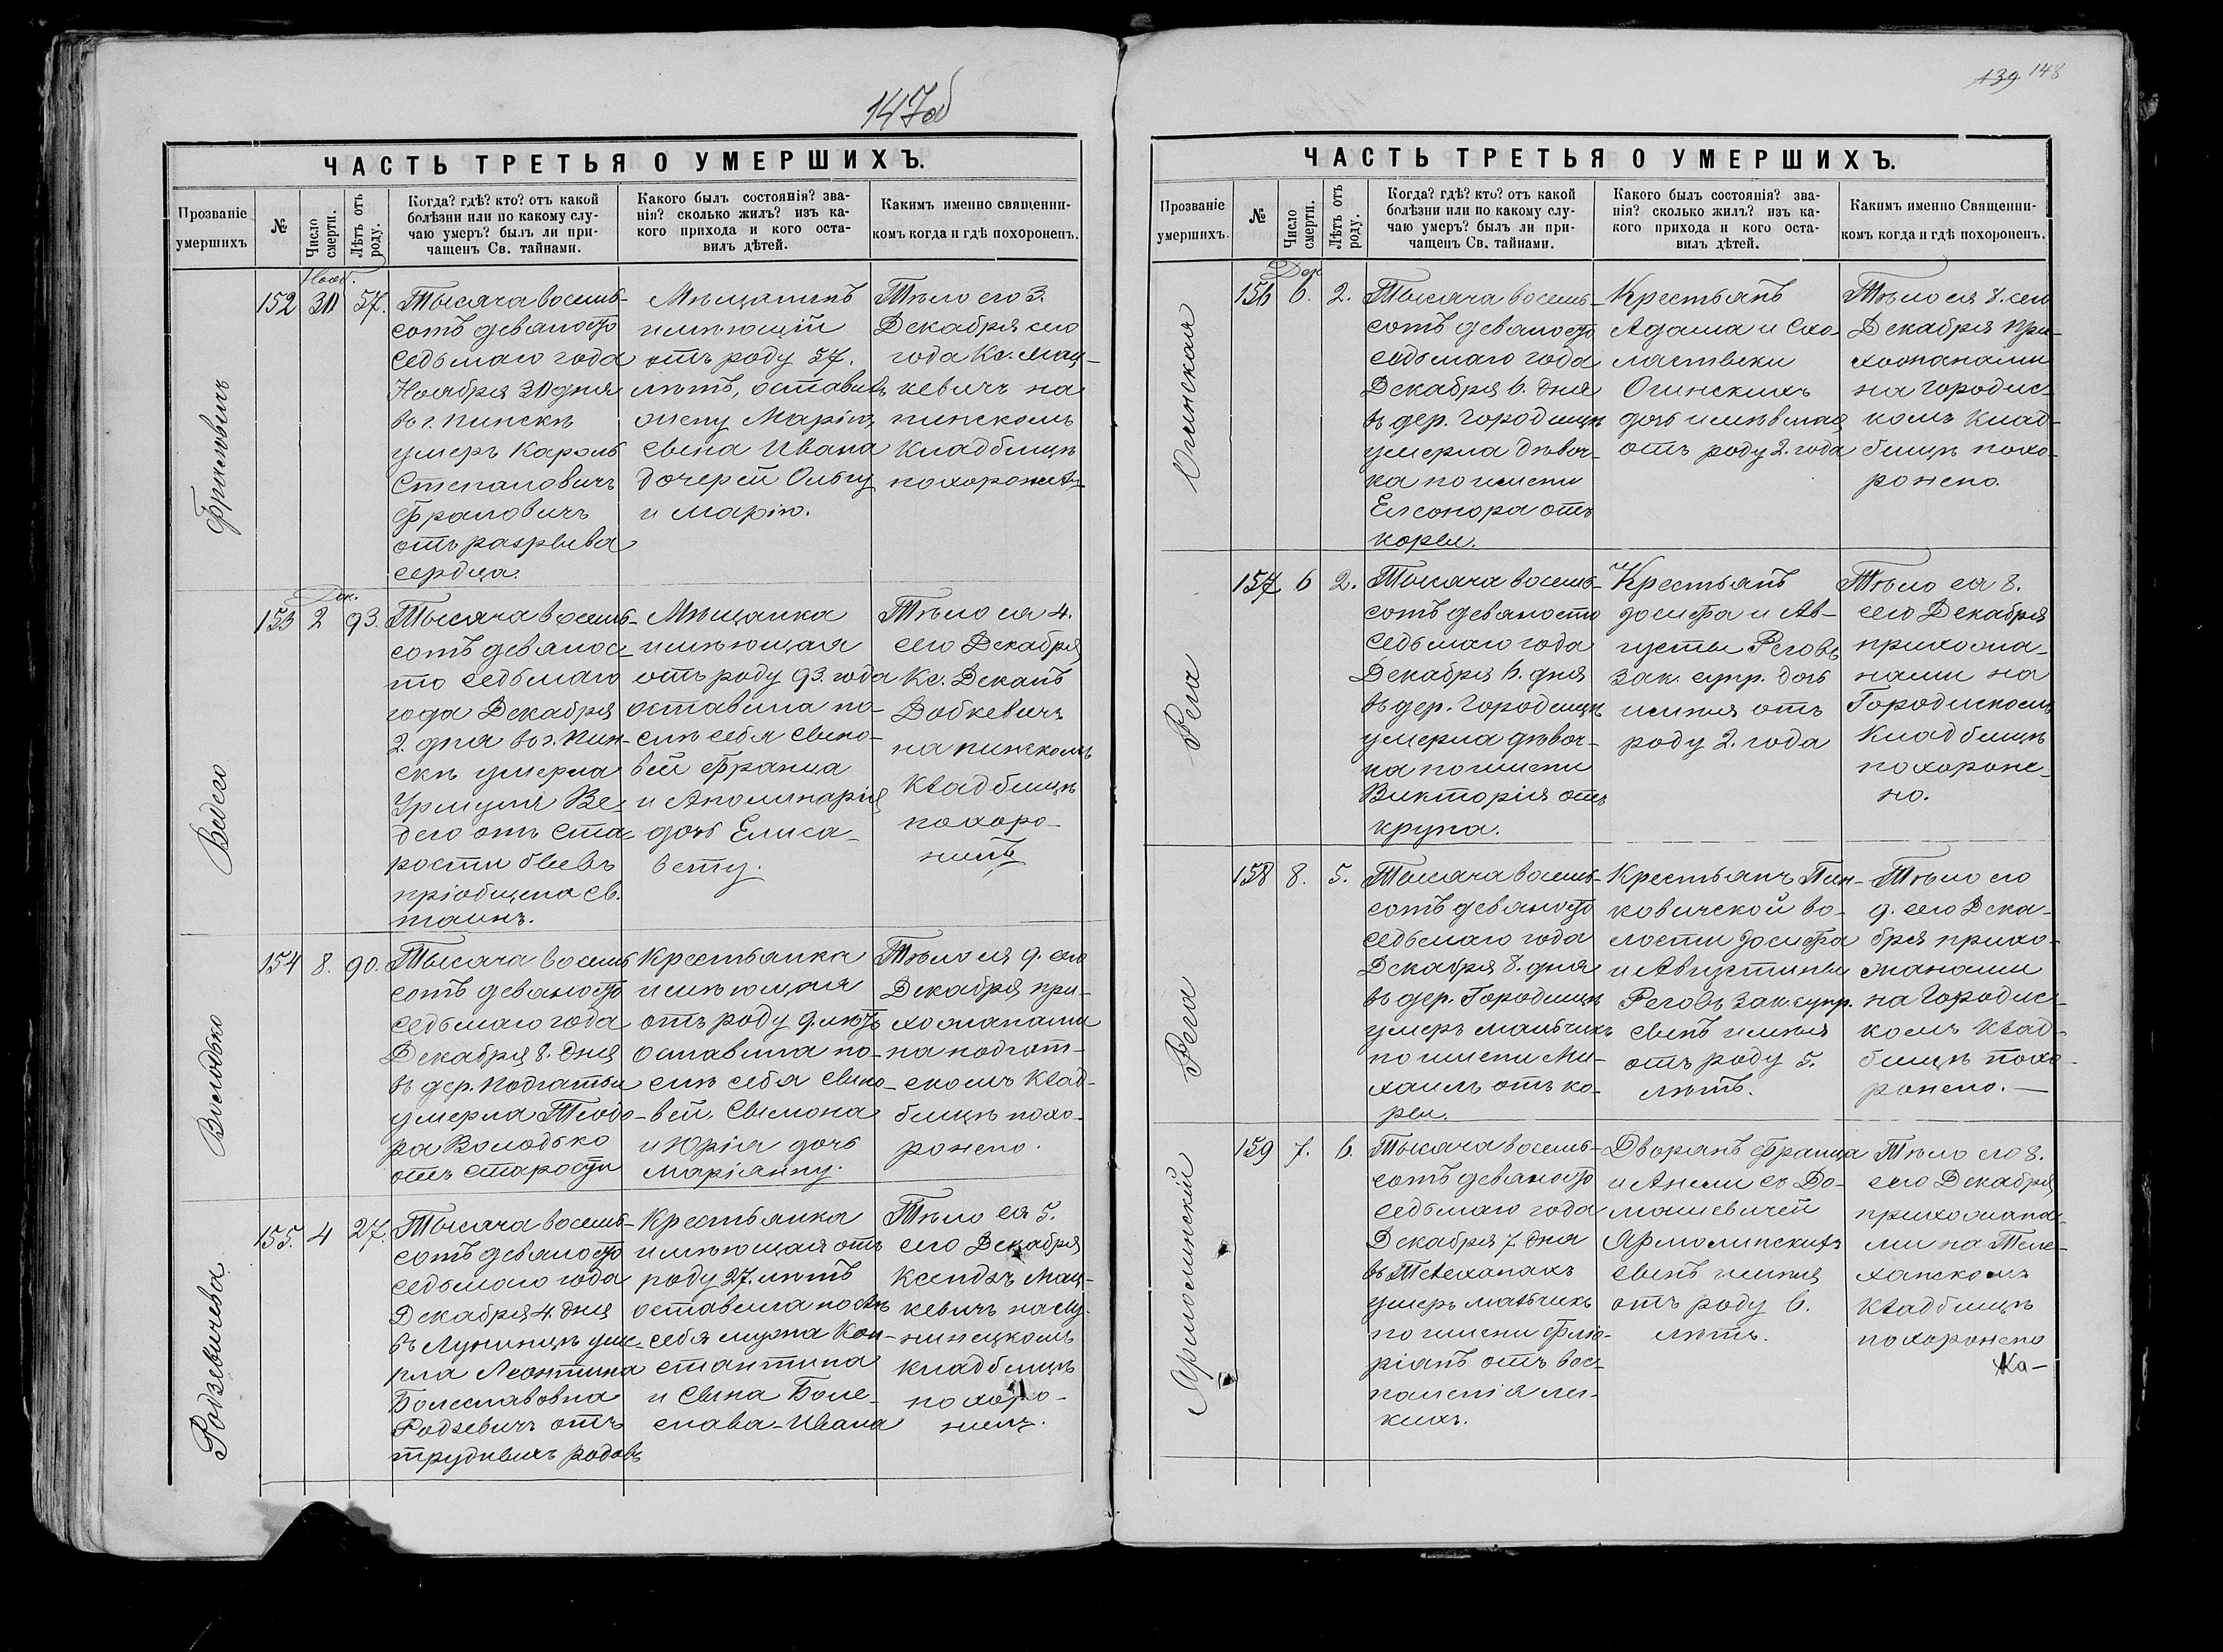 147об
ЧАСТЬ ТРЕТЬЯ О УМЕРШИХЪ.
Прозваніе умершихъ
№
Число смерти.
Лѣтъ отъ роду.
Когда? гдѣ? кто? отъ какой
болѣзни или по какому слу-
чаю умеръ? былъ ли при-
чащенъ Св. тайнами.
Какого былъ состоянія? зва-
нія? сколько жилъ? изъ ка-
кого прихода и кого оста-
вилъ дѣтей.
Какимъ именно священни-
комъ когда и гдѣ похороненъ.
Нояб.
152 30 57.
Тысяча восемь-
сотъ девяносто
седьмаго года
Ноября 30 дня
въ г. Пинскѣ
умеръ Кароль
Степановичъ
Франовичъ
отъ разрыва
сердца.
Мѣщанинъ
имѣющій
отъ роду 57.
лѣтъ, оставивъ
жену Марію,
сына Ивана
дочерей Ольгу
и Марію.
Тѣло его 3.
Декабря сего
года Кс. Мац-
кевичъ на
пинскомъ
кладбищѣ
похоронилъ
Ведего
Дек.
153 2 93.
Тысяча восемь-
сотъ девянос-
то седьмаго
года Декабря
2. дня въ г. Пин-
скѣ умерла
Урсуля Ве-
дего отъ ста-
рости бывъ
пріобщена Св.
таинъ.
Мѣщанка
имѣющая
отъ роду 93. года
оставила по-
слѣ себя сыно-
вей Франца
и Аполинарія
дочь Елиса-
вету.
Тѣло ея 4.
сего Декабря
Кс. Деканъ
Добкевичъ
на пинскомъ
кладбищѣ
похоро-
нилъ
Володько
154 8. 90.
Тысяча восемь
сотъ девяносто
седьмаго года
Декабря 8. дня
въ дер. Подгатьи
умерла Теодо-
ра Володько
отъ старости
Крестьянка
имѣющая
отъ роду
оставила по-
слѣ себя сыно-
вей, Сымона
и Юрія дочь
Маріанну.
Тѣло ея 9. сего
Декабря при-
хожанами
на подгат-
скомъ клад-
бищѣ похо-
ронено.
Родзевичева
155. 4 27.
Тысяча восемь-
сотъ девяносто
седьмаго года
Декабря 4. дня
въ Лунинцѣ уме-
рла Леонтина
Болеславовна
Родзевичъ отъ
трудныхъ родовъ
Крестьянка
имѣющая отъ
роду 27. лѣтъ
оставила послѣ
себя мужа Кон-
стантина
и сына Боле-
слава-Ивана
Тѣло ея 5.
сего Декабря
Ксендзъ Мац-
кевичъ на Лу-
нинецкомъ
кладбищѣ
похоро-
нилъ.
139 148
ЧАСТЬ ТРЕТЬЯ О УМЕРШИХЪ.
Прозваніе умершихъ.
№
Число смерти.
Лѣтъ отъ роду.
Когда? гдѣ? кто? отъ какой
болѣзни или по какому слу-
чаю умеръ? былъ ли при-
чащенъ Св. тайнами.
Какого былъ состоянія? зва-
нія? сколько жилъ? изъ ка-
кого прихода и кого оста-
вилъ дѣтей.
Какимъ именно Священни-
комъ когда и гдѣ похороненъ.
Огинская
Дек
156 6. 2.
Тысяча восемь-
сотъ девяносто
седьмаго года
Декабря 6. дня
въ дер. Городищѣ
умерла дѣвоч-
ка по имени
Елеонора отъ
кори.
Крестьянъ
Адама и Схо-
ластыки
Огинскихъ
дочь имѣвшая
отъ роду 2. года
Тѣло ея 8. сего
Декабря при-
хожанами
на Городис-
комъ клад-
бищѣ похо-
ронено.
Рега
157 6 2.
Тысяча восемь-
сотъ девяносто
седьмаго года
Декабря 6. дня
въ дер. Городищѣ
умерла дѣвоч-
ка по имени
Викторія отъ
крупа.
Крестьянъ
Іосифа и Ав-
густы Реговъ
зак. супр. дочь
имѣя отъ
роду 2. года
Тѣло ея 8.
сего Декабря
прихожа-
нами на
Городискомъ
кладбищѣ
похороне-
но.
Рега
158 8. 5.
Тысяча восемь-
сотъ девяносто
седьмаго года
Декабря 8. дня
въ дер. Городищѣ
умеръ мальчикъ
по имени Ми-
хаилъ отъ ко-
ри.
Крестьянъ Пин-
ковичской во-
лости Іосифа
и Августины
Реговъ зак. супр.
сынъ имѣя
отъ роду 5.
лѣтъ.
Тѣло его
9. сего Дека-
бря прихо-
жанами
на Городис-
комъ клад-
бищѣ похо-
ронено.
Ярмолинскій
159 7. 6.
Тысяча восемь-
сотъ девяносто
седьмаго года
Декабря 7. дня
въ Телеханахъ
умеръ мальчикъ
по имени Фло-
ріанъ отъ вос-
паленія лег-
кихъ.
Дворянъ Франца
и Анели съ До-
машевичей
Ярмолинскихъ
сынъ имѣя
отъ роду 6.
лѣтъ.
Тѣло его 8.
сего Декабря
прихожана-
ми на Теле-
ханскомъ
кладбищѣ
похоронено